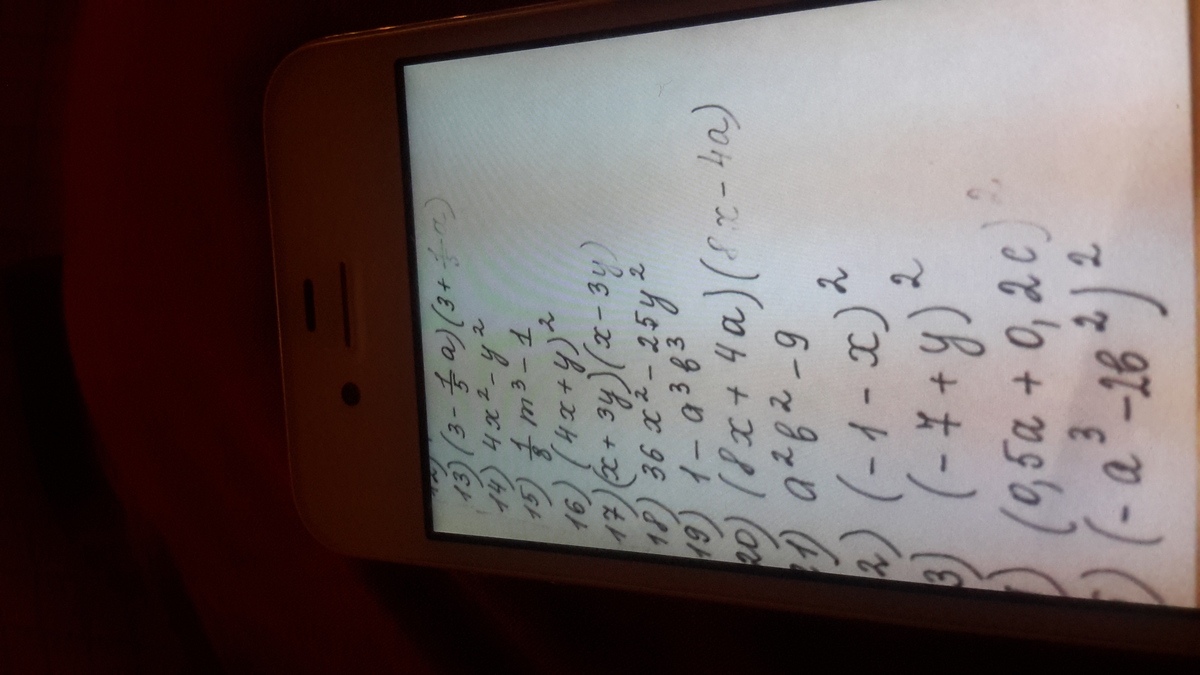 13) (3 - 1/5 a)(3 + 1/5 a)
14) 4x² - y²
15) 1/8 m³ - 1
16) (4x + y)²
17) (x + 3y)(x - 3y)
18) 36x² - 25y²
19) 1 - a³b³
20) (8x + 4a)(8x - 4a)
1) a²b² - 9
2) (-1 - x)²
3) (-7 + y)²
) (0,5a + 0,2c)²
) (-a³ - 2b²)²